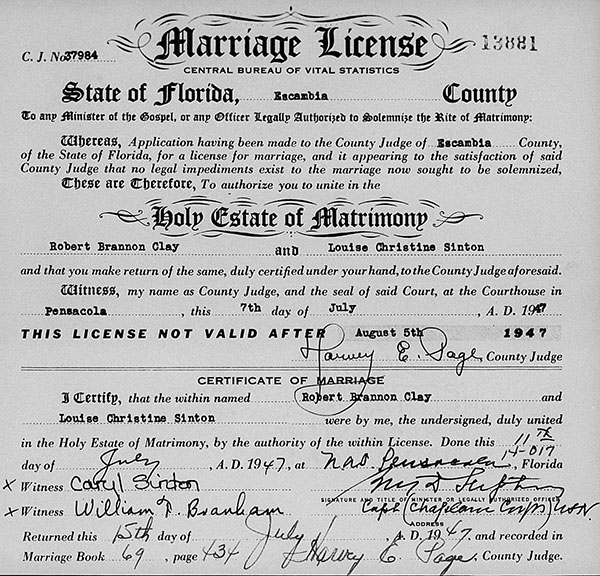 Marriage License
13881
C. J. No. 37984
CENTRAL BUREAU OF VITAL STATISTICS
State of Florida, Escambia County
To any Minister of the Gospel, or any Officer Legally Authorized to Solemnize the Rite of Matrimony:
Whereas, Application having been made to the County Judge of Escambia County,
of the State of Florida, for a license for marriage, and it appearing to the satisfaction of said
County Judge that no legal impediments exist to the marriage now sought to be solemnized,
These are Therefore, To authorize you to unite in the
Holy Estate of Matrimony
Robert Brannon Clay and Louise Christine Sinton
and that you make return of the same, duly certified under your hand, to the County Judge aforesaid.
Witness, my name as County Judge, and the seal of said Court, at the Courthouse in
Pensacola, this 7th day of July, A. D. 1947
THIS LICENSE NOT VALID AFTER August 5th 1947
Harvey E. Page, County Judge
CERTIFICATE OF MARRIAGE
I Certify, that the within named Robert Brannon Clay and
Louise Christine Sinton were by me, the undersigned, duly united
in the Holy Estate of Matrimony, by the authority of the within License. Done this 11th
14-017
day of July, A. D. 1947, at NAS Pensacola, Florida
X Witness Caryl Sinton
SIGNATURE AND TITLE OF MINISTER OR LEGALLY AUTHORIZED OFFICER
X Witness William D. Branham Capt (Chaplain Corps) USN
ADDRESS
Returned this 15th day of July, A. D. 1947. and recorded in
Marriage Book 69, page 434 Harvey E. Page, County Judge.